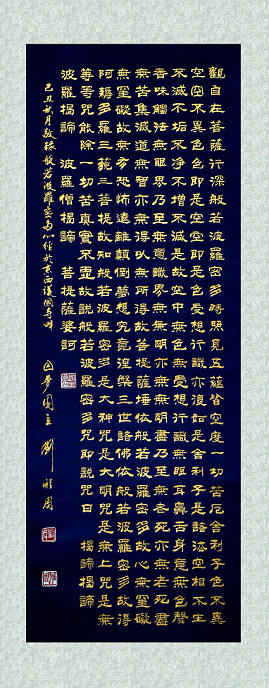 觀自在菩薩行深般若波羅密多時照見五蘊皆空度一切苦厄舍利子色不異
空空不異色色即是空空即是色受想行識亦復如是舍利子是諸法空相不生
不滅不垢不淨不增不減是故空中無色無受想行識無眼耳鼻舌身意無色聲
香味觸法無眼界乃至無意識界無無明亦無無明盡乃至無老死亦無老死盡
無苦集滅道無智亦無得以無所得故菩提薩埵依般若波羅密多故心無罣礙
無罣礙故無有恐怖遠離顛倒夢想究竟涅槃三世諸佛依般若波羅密多故得
阿耨多羅三藐三菩提故知般若波羅密多是大神咒是大明咒是無上咒是無
等等咒能除一切苦真實不虛故說般若波羅密多咒即說咒曰 揭諦揭諦
波羅揭諦 波羅僧揭諦 菩提薩婆訶
己丑秋月敬錄般若波羅密多心經於京西護國寺畔
劉